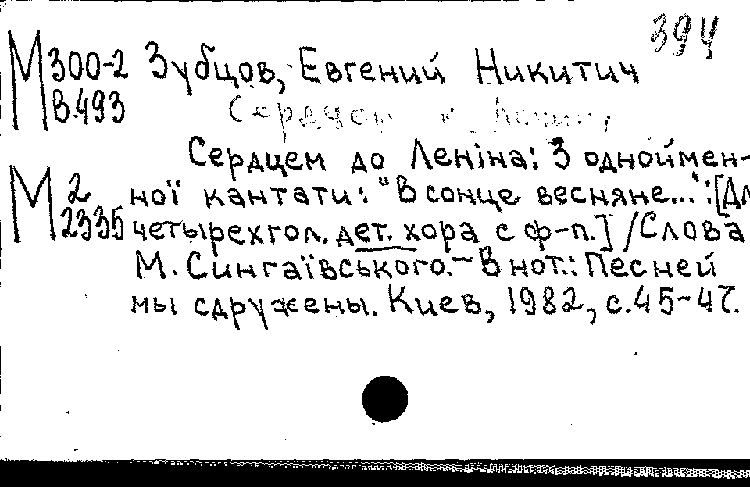 394
М300-2 Зубцов, Евгений Никитич
В.493
Сердцем
Сердцем до Леніна: З одноймен-
М2 ної кантати: "В сонце весняне...": [Дл
2335 четырехгол. дет. хора с ф-п.] / Слова
М. Сингаївського. - В нот.: Песней
мы сдружены. Киев, 1982, с.45-47.